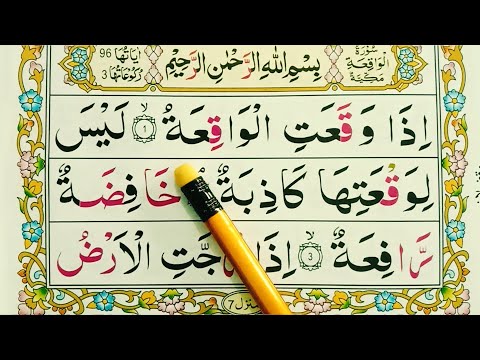 سُوْرَةُ الْوَاقِعَةِ مَكِّيَّةٌ
بِسْمِ اللّٰهِ الرَّحْمٰنِ الرَّحِيْمِ
اٰيَاتُهَا 96
رُكُوْعَاتُهَا 3
اِذَا وَقَعَتِ الْوَاقِعَةُ ۙ 1 لَيْسَ
لِوَقْعَتِهَا كَاذِبَةٌ خَافِضَةٌ
رَّافِعَةٌ ۙ 3 اِذَا الْاَرْضُ
7